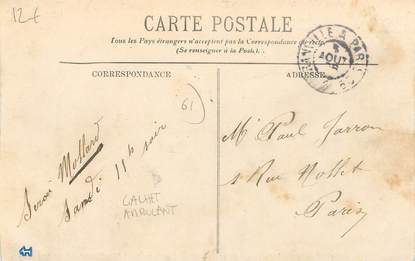 12€
CARTE POSTALE
Tous les Pays étrangers n'acceptent pas la Correspondance au recto
(Se renseigner à la Poste).
CORRESPONDANCE
ADRESSE
A PARIS
AOUT
61
Serai Mollard
Samedi 11h soir
CACHET
AMBULANT
Mr Paul Jarron
Rue Nollet
Paris